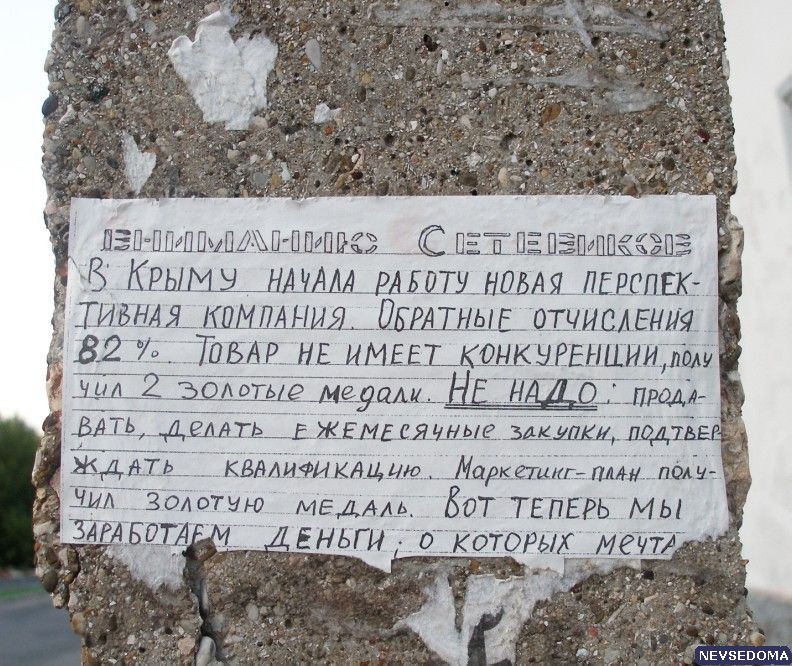 ВНИМАНИЮ СЕТЕВИКОВ
В КРЫМУ НАЧАЛА РАБОТУ НОВАЯ ПЕРСПЕК-
ТИВНАЯ КОМПАНИЯ. ОБРАТНЫЕ ОТЧИСЛЕНИЯ
82%. ТОВАР НЕ ИМЕЕТ КОНКУРЕНЦИИ, полу
чил 2 золотые медали. НЕ НАДО: ПРОДА-
ВАТЬ, ДЕЛАТЬ ЕЖЕМЕСЯЧНЫЕ ЗАКУПКИ, ПОДТВЕР
ЖДАТЬ КВАЛИФИКАЦИЮ. МАРКЕТИНГ-ПЛАН ПОЛУ-
ЧИЛ ЗОЛОТУЮ МЕДАЛЬ. ВОТ ТЕПЕРЬ МЫ
ЗАРАБОТАЕМ ДЕНЬГИ, О КОТОРЫХ МЕЧТА
NEVSEDOMA